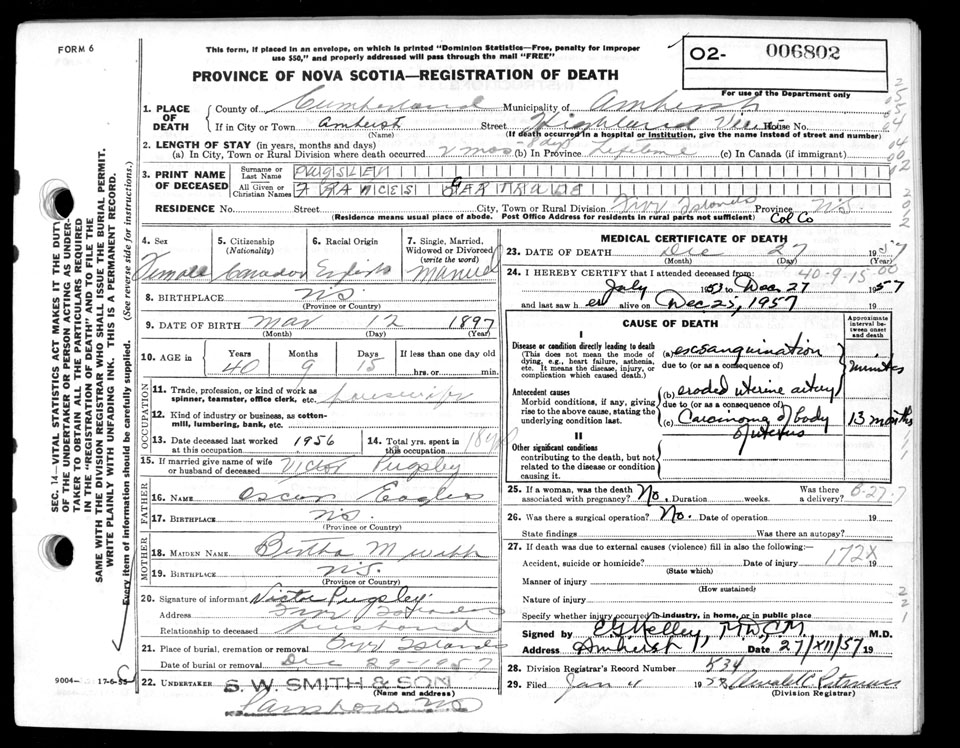 FORM 6
This form, if placed in an envelope, on which is printed "Dominion Statistics—Free, penalty for improper
use $50," and properly addressed will pass through the mail "FREE"
PROVINCE OF NOVA SCOTIA—REGISTRATION OF DEATH
O2- 006802
For use of the Department only
1. PLACE OF DEATH
County of Cumberland Municipality of Amherst
If in City or Town Amherst Street Highland View House No.
(Name) (If death occurred in a hospital or institution, give the name instead of street and number)
2. LENGTH OF STAY (in years, months and days)
(a) In City, Town or Rural Division where death occurred 2 mos 8 days (b) In Province Lifetime (c) In Canada (if immigrant)
3. PRINT NAME OF DECEASED
Surname or Last Name PUGSLEY
All Given or Christian Names FRANCES GERTRUDE
RESIDENCE No. Street City, Town or Rural Division Five Islands Province N.S.
(Residence means usual place of abode. Post Office Address for residents in rural parts not sufficient) Col Co
4. Sex Female
5. Citizenship (Nationality) Canadian
6. Racial Origin English
7. Single, Married, Widowed or Divorced (write the word) Married
8. BIRTHPLACE N.S.
(Province or Country)
9. DATE OF BIRTH Mar 12 1897
(Month) (Day) (Year)
10. AGE in Years 40 Months 9 Days 15 If less than one day old
hrs. or min.
OCCUPATION
11. Trade, profession, or kind of work as spinner, teamster, office clerk, etc. housewife
12. Kind of industry or business, as cotton-mill, lumbering, bank, etc.
13. Date deceased last worked at this occupation 1956 14. Total yrs. spent in this occupation 18
15. If married give name of wife or husband of deceased Victor Pugsley
FATHER
16. NAME Oscar Eagles
17. BIRTHPLACE N.S.
(Province or Country)
MOTHER
18. MAIDEN NAME Bertha M Webb
19. BIRTHPLACE N.S.
(Province or Country)
20. Signature of informant Victor Pugsley
Address Five Islands
Relationship to deceased husband
21. Place of burial, cremation or removal Five Islands
Date of burial or removal Dec 29-1957
22. UNDERTAKER S. W. SMITH & SON
(Name and address)
Parrsboro NS
MEDICAL CERTIFICATE OF DEATH
23. DATE OF DEATH Dec 27 1957
(Month) (Day) (Year)
40-9-15-00
24. I HEREBY CERTIFY that I attended deceased from
July 1953 to Dec 27 1957
and last saw her alive on Dec 25, 1957 19
CAUSE OF DEATH
Approximate interval between onset and death
I
Disease or condition directly leading to death
(This does not mean the mode of dying, e.g., heart failure, asthenia, etc. It means the disease, injury, or complication which caused death.)
(a) exsanguination minutes
due to (or as a consequence of)
Antecedent causes
Morbid conditions, if any, giving rise to the above cause, stating the underlying condition last.
(b) eroded uterine artery
due to (or as a consequence of)
(c) Carcinoma of body of uterus 13 months
II
Other significant conditions
contributing to the death, but not related to the disease or condition causing it.
25. If a woman, was the death associated with pregnancy? No. Duration weeks. Was there a delivery?
26. Was there a surgical operation? No. Date of operation 19
State findings Was there an autopsy?
27. If death was due to external causes (violence) fill in also the following:—
Accident, suicide or homicide? Date of injury 19
172X
(State which)
Manner of injury
(How sustained)
Nature of injury
Specify whether injury occurred in industry, in home, or in public place
Signed by M.D.C.M. M.D.
Address Amherst Date 27/XII/57 19
28. Division Registrar's Record Number 534
29. Filed Jan 4 1958
(Division Registrar)
SEC. 14—VITAL STATISTICS ACT MAKES IT THE DUTY
OF THE UNDERTAKER OR PERSON ACTING AS UNDERTAKER TO OBTAIN ALL THE PARTICULARS REQUIRED
IN THE "REGISTRATION OF DEATH" AND TO FILE THE
SAME WITH THE DIVISION REGISTRAR WHO SHALL ISSUE THE BURIAL PERMIT.
WRITE PLAINLY WITH UNFADING INK. THIS IS A PERMANENT RECORD.
Every item of information should be carefully supplied. (See reverse side for instructions.)
9004— 17-6-55